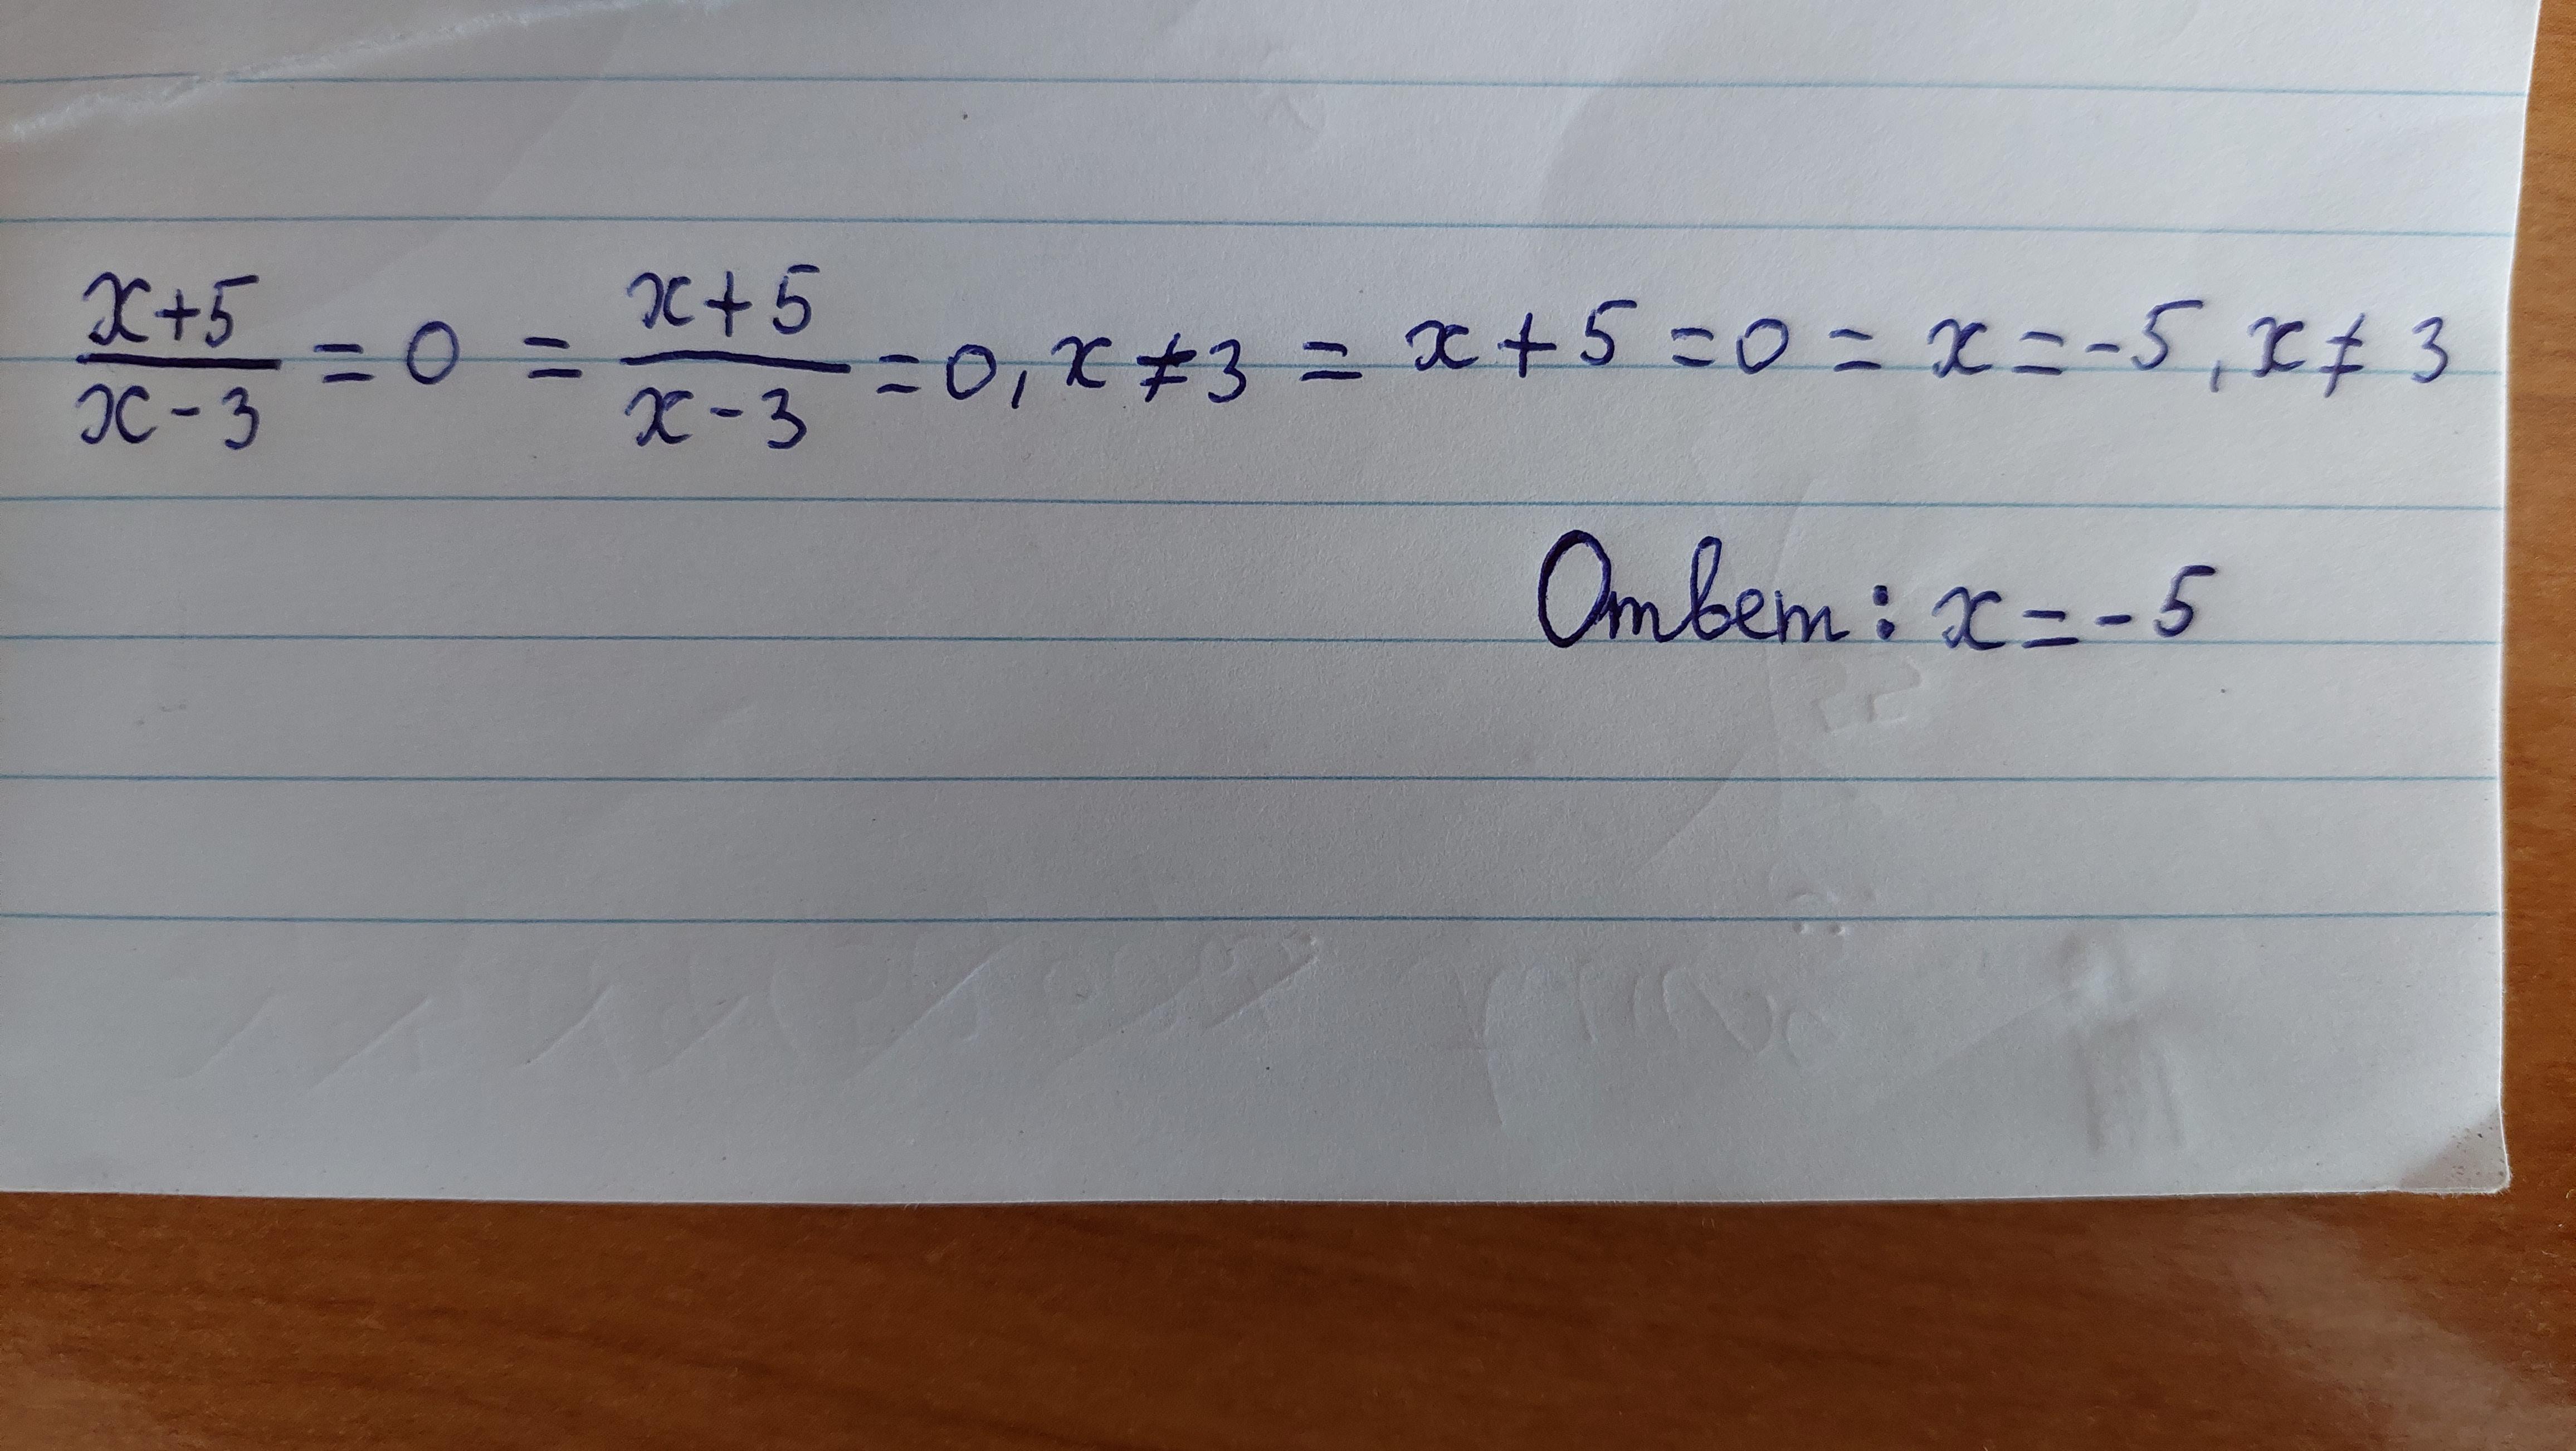 (x+5)/(x-3) = 0 = (x+5)/(x-3) = 0, x ≠ 3 = x + 5 = 0 = x = -5, x ≠ 3
Ответ: x = -5